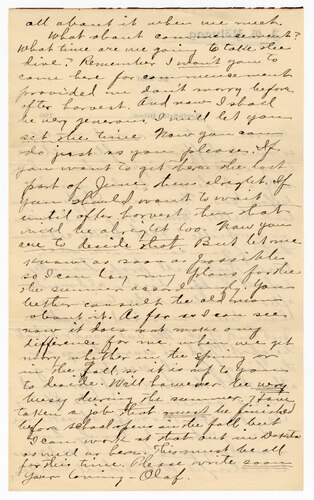 all about it when we meet.
What about commencement?
What time are we going to take the
dive? Remember I want you to
come here for commencement
provided we don't marry before
after harvest. And now I shall
be very generous. I will let you
set the time. Now you can
do just as you please. If
you want to get here the last
part of June, then alright. If
you should want to wait
until after harvest then that
will be alright too. Now you
are to decide that. But let me
know as soon as possible
so I can lay my plans for the
the summer accordingly. You
better consult the old man
about it. As far as I can see
now it does not make any
difference for me when we get
marry whether in the spring or
in the fall so it is up to you
to decide. Will however be very
busy during the summer. I have
taken a job that must be finished
before school opens in the fall but
I can work at that out in Dakota
as well as here. This must be all
for this time. Please write soon
Your loving - Olaf.